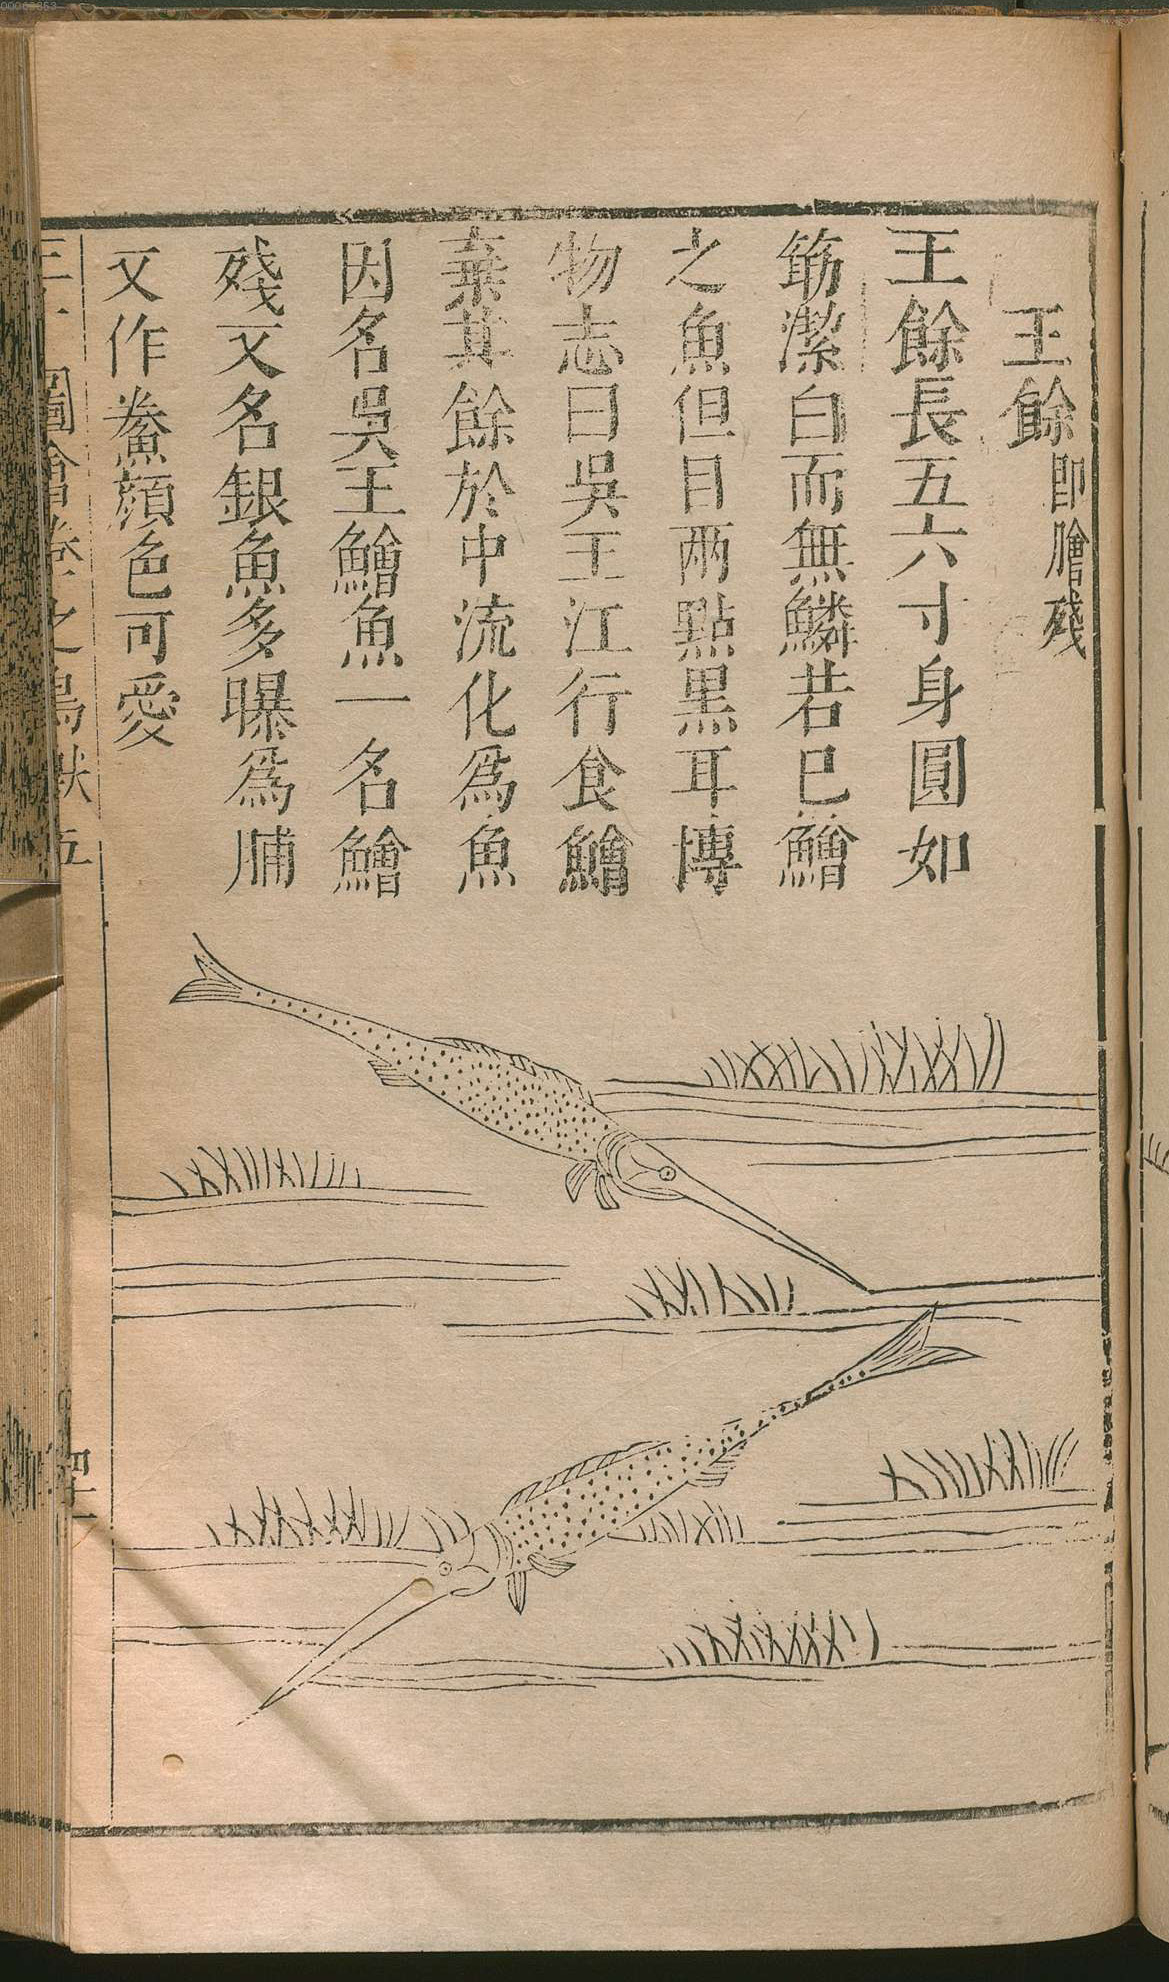 王餘即膾殘
王餘長五六寸身圓如
筯潔白而無鱗若巳鱠
之魚但目兩點黒耳博
物志曰吳王江行食鱠
棄其餘於中流化爲魚
因名吳王鱠魚一名鱠
殘又名銀魚多曝爲脯
又作鮝顔色可愛
圖會卷之鳥獸五
00063353